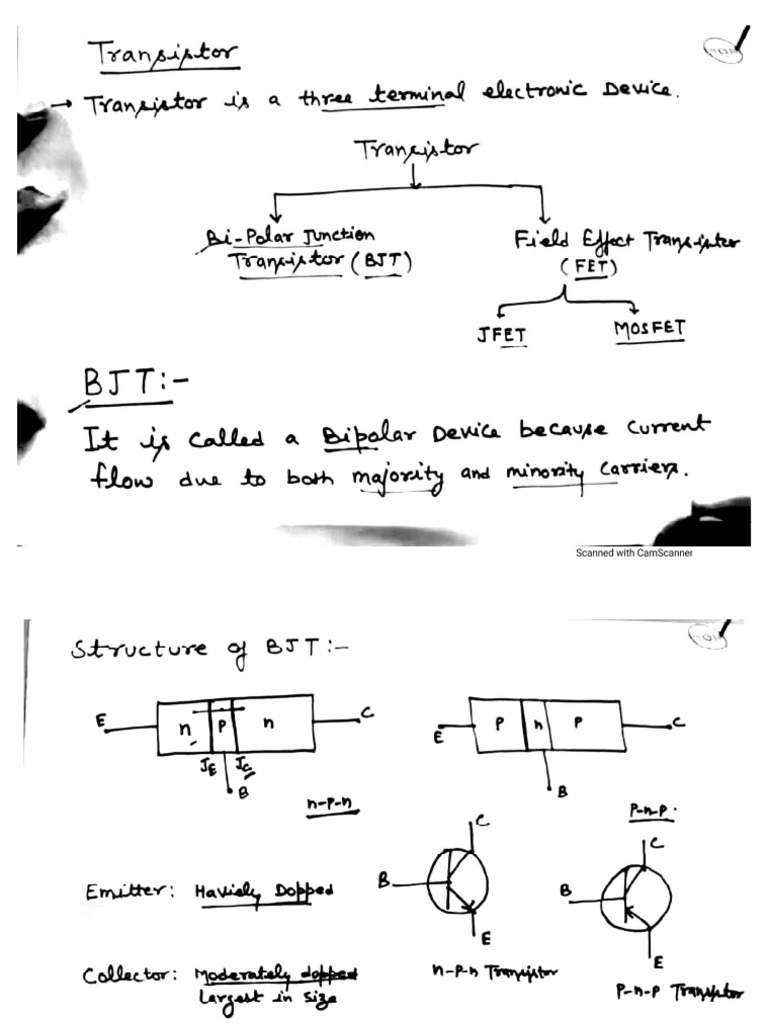 Transistor
→ Transistor is a three terminal electronic Device.
Transistor
Bi-Polar Junction
Transistor (BJT)
Field Effect Transister
(FET)
JFET
MOSFET
BJT:-
It is called a Bipolar Device because current
flow due to both majority and minority Carriers.
Scanned with CamScanner
Structure of BJT:-
E n P n C
JE JC
B
n-p-n
E P n P C
B
P-n-P.
Emitter: Haviely Dopped
Collector: Moderately dopped
Largest in size
C
B
E
n-p-n Transistor
C
B
E
P-n-P Transistor